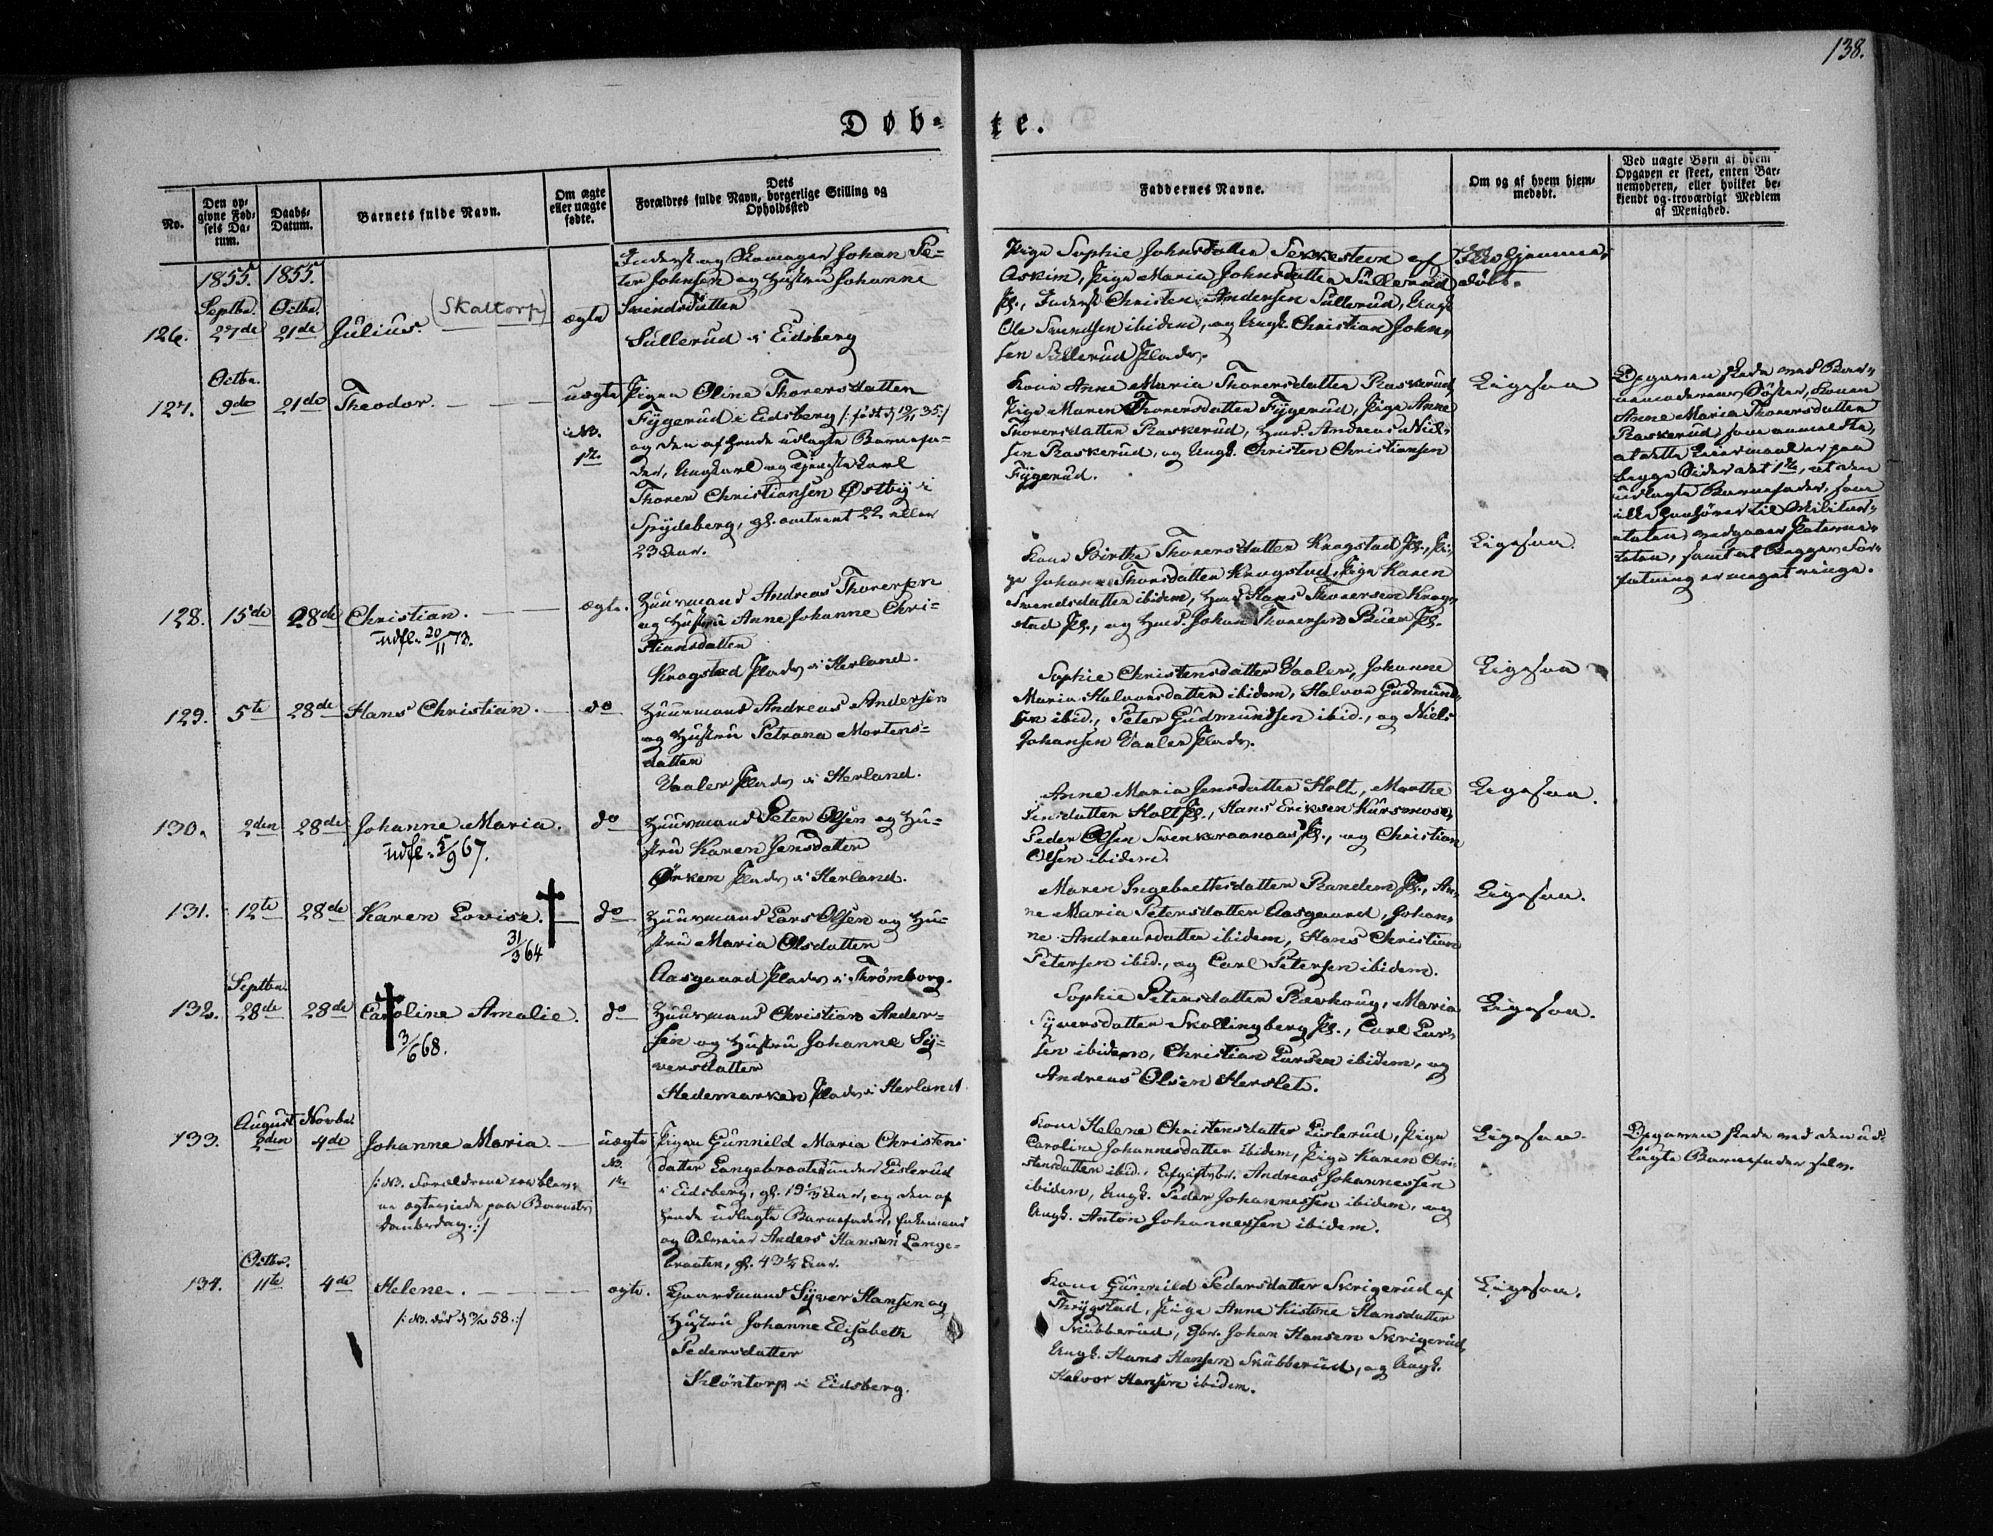 138.
Døb-
te.
No.
Den op-
givne Fød-
sels Da-
tum.
Daabs-
Datum.
Barnets fulde Navn.
Om ægte
eller uægte
fødte.
Dets
Forældres fulde Navn, borgerlige Stilling og
Opholdssted
Faddernes Navne.
Om og af hvem hjem-
medøbt.
Ved uægte Børn af hvem
Opgaven er skeet, enten Bar-
nemoderen, eller hvilket be-
kjendt og troværdigt Medlem
af Menighed.
1855. 1855.
Septbr. Octbr.
126. 27de 21de Julius (Skaltorp) ægte
Inderst og Skomager Johan Pe-
ter Johnsen og Hustru Johanne
Svendsdatter
Sullerud i Eidsberg
Pige Sophie Johnsdatter Sekkesteen af
Askim, Pige Maria Johnsdatter Sullerud
Pl., Inderst Christen Andersen Sullerud, Ungk.
Ole Svendsen ibidem, og Ungk. Christian John-
sen Sullerud Plads.
Ikke hjemme-
døbt.
Octbr.
127. 9de 21de Theodor. uægte
NB.
1ste
Pigen Oline Thorersdatter
Fygerud i Eidsberg /: født d 12/1 35 :/
og den af hende udlagte Barnefa-
der, Ungkarl og Tjenestekarl
Thorer Christiansen Østby i
Spydeberg, gl. omtrent 22 eller
23 Aar.
Kone Anne Maria Thorersdatter Raskerud,
Pige Maren Thorersdatter Fygerud, Pige Anne
Thorersdatter Raskerud, Huusm. Andreas Niel-
sen Raskerud, og Ungk. Christen Christiansen
Fygerud.
Ligesaa
Opgaven skede ved Bar-
nemoderens Søster, Konen
Anne Maria Thorersdatter
Raskerud, som anmeldte,
at dette Leiermaal er paa
begge Sider det 1ste, at den
udlagte Barnefader, som
ikke henhører til Militær-
etaten, vedgaaer Paterni-
teten, samt at Begges For-
fatning er meget ringe.
128. 15de 28de Christian. ægte.
udfl. 20/11 73.
Huusmand Andreas Thorersen
og Hustru Anne Johanne Chri-
stiansdatter
Kragstad Plads i Herland.
Kone Birthe Thorersdatter Kragstad Pl., Pi-
ge Johanne Thorsdatter Kragstad, Pige Karen
Svendsdatter ibidem, Huusm. Hans Thorersen Krag-
stad Pl., og Huusm. Johan Thorersen Buer Pl.
Ligesaa.
129. 5te 28de Hans Christian. do
Huusmand Andreas Andersen
og Hustru Petrana Mortens-
datter
Vaaler Plads i Herland.
Sophie Christensdatter Vaaler, Johanne
Maria Halvorsdatter ibidem, Halvor Gudmund-
sen ibid., Peter Gudmundsen ibid., og Niels
Johansen Vaaler Plads.
Ligesaa
130. 2den 28de Johanne Maria. do
udfl. 5/9 67.
Huusmand Peter Olsen og Hu-
stru Karen Jensdatter
Ørken Plads i Herland.
Anne Maria Jensdatter Holt, Marthe
Jensdatter Holt Pl., Hans Eriksen Kursmose,
Peder Olsen Svenkeraanaas Pl., og Christian
Olsen ibidem.
Ligesaa.
131. 12te 28de Karen Lovise. do
31/3 64
Huusmand Lars Olsen og Hu-
stru Maria Olsdatter
Aasgaard Plads i Thrømborg.
Maren Ingebrethsdatter Randem Pl., An-
ne Maria Petersdatter Aasgaard, Johan-
ne Andreasdatter ibidem, Hans Christian
Petersen ibid., og Carl Petersen ibidem.
Ligesaa.
Septbr.
132. 28de 28de Caroline Amalie. do
3/6 68.
Huusmand Christian Ander-
sen og Hustru Johanne Sy-
versdatter
Hedemarken Plads i Herland.
Sophie Petersdatter Ravhoug, Maria
Syversdatter Skollingberg Pl., Carl Lar-
sen ibidem, Christian Larsen ibidem, og
Andreas Olsen Herslet.
Ligesaa.
August Novbr.
133. 2den 4de Johanne Maria. uægte
NB.
1ste
/: NB. Forældrene ere blev-
ne ægteviede paa Barnets
Daabsdag. :/
Pigen Gunnild Maria Christens-
datter Langebraaten under Eislerud
i Eidsberg, gl. 19 1/2 Aar, og den af
hende udlagte Barnefader, Enkemand
og Anders Hansen Lange-
braaten, gl. 43 1/4 Aar.
Kone Helene Christensdatter Eislerud, Pige
Caroline Johannesdatter ibidem, Pige Karen Chri-
stensdatter ibid., Andreas Johannessen
ibidem, Ungk. Peder Johannessen ibidem, og
Ungk. Anton Johannessen ibidem.
Ligesaa.
Opgaven skede ved den ud-
lagte Barnefader selv.
Octbr.
134. 11te 4de Helene. ægte.
Gaardmand Syver Hansen og
Hustru Johanne Elisabeth
Pedersdatter
Kløntorp i Eidsberg.
Kone Gunnild Pedersdatter Skrigerud af
Thrygstad, Pige Anne Kistine Hansdatter
Skubberud, Gbr. Johan Hansen Skrigerud,
Ungk. Hans Hansen Skubberud, og Ungk.
Halvor Hansen ibidem.
Ligesaa.